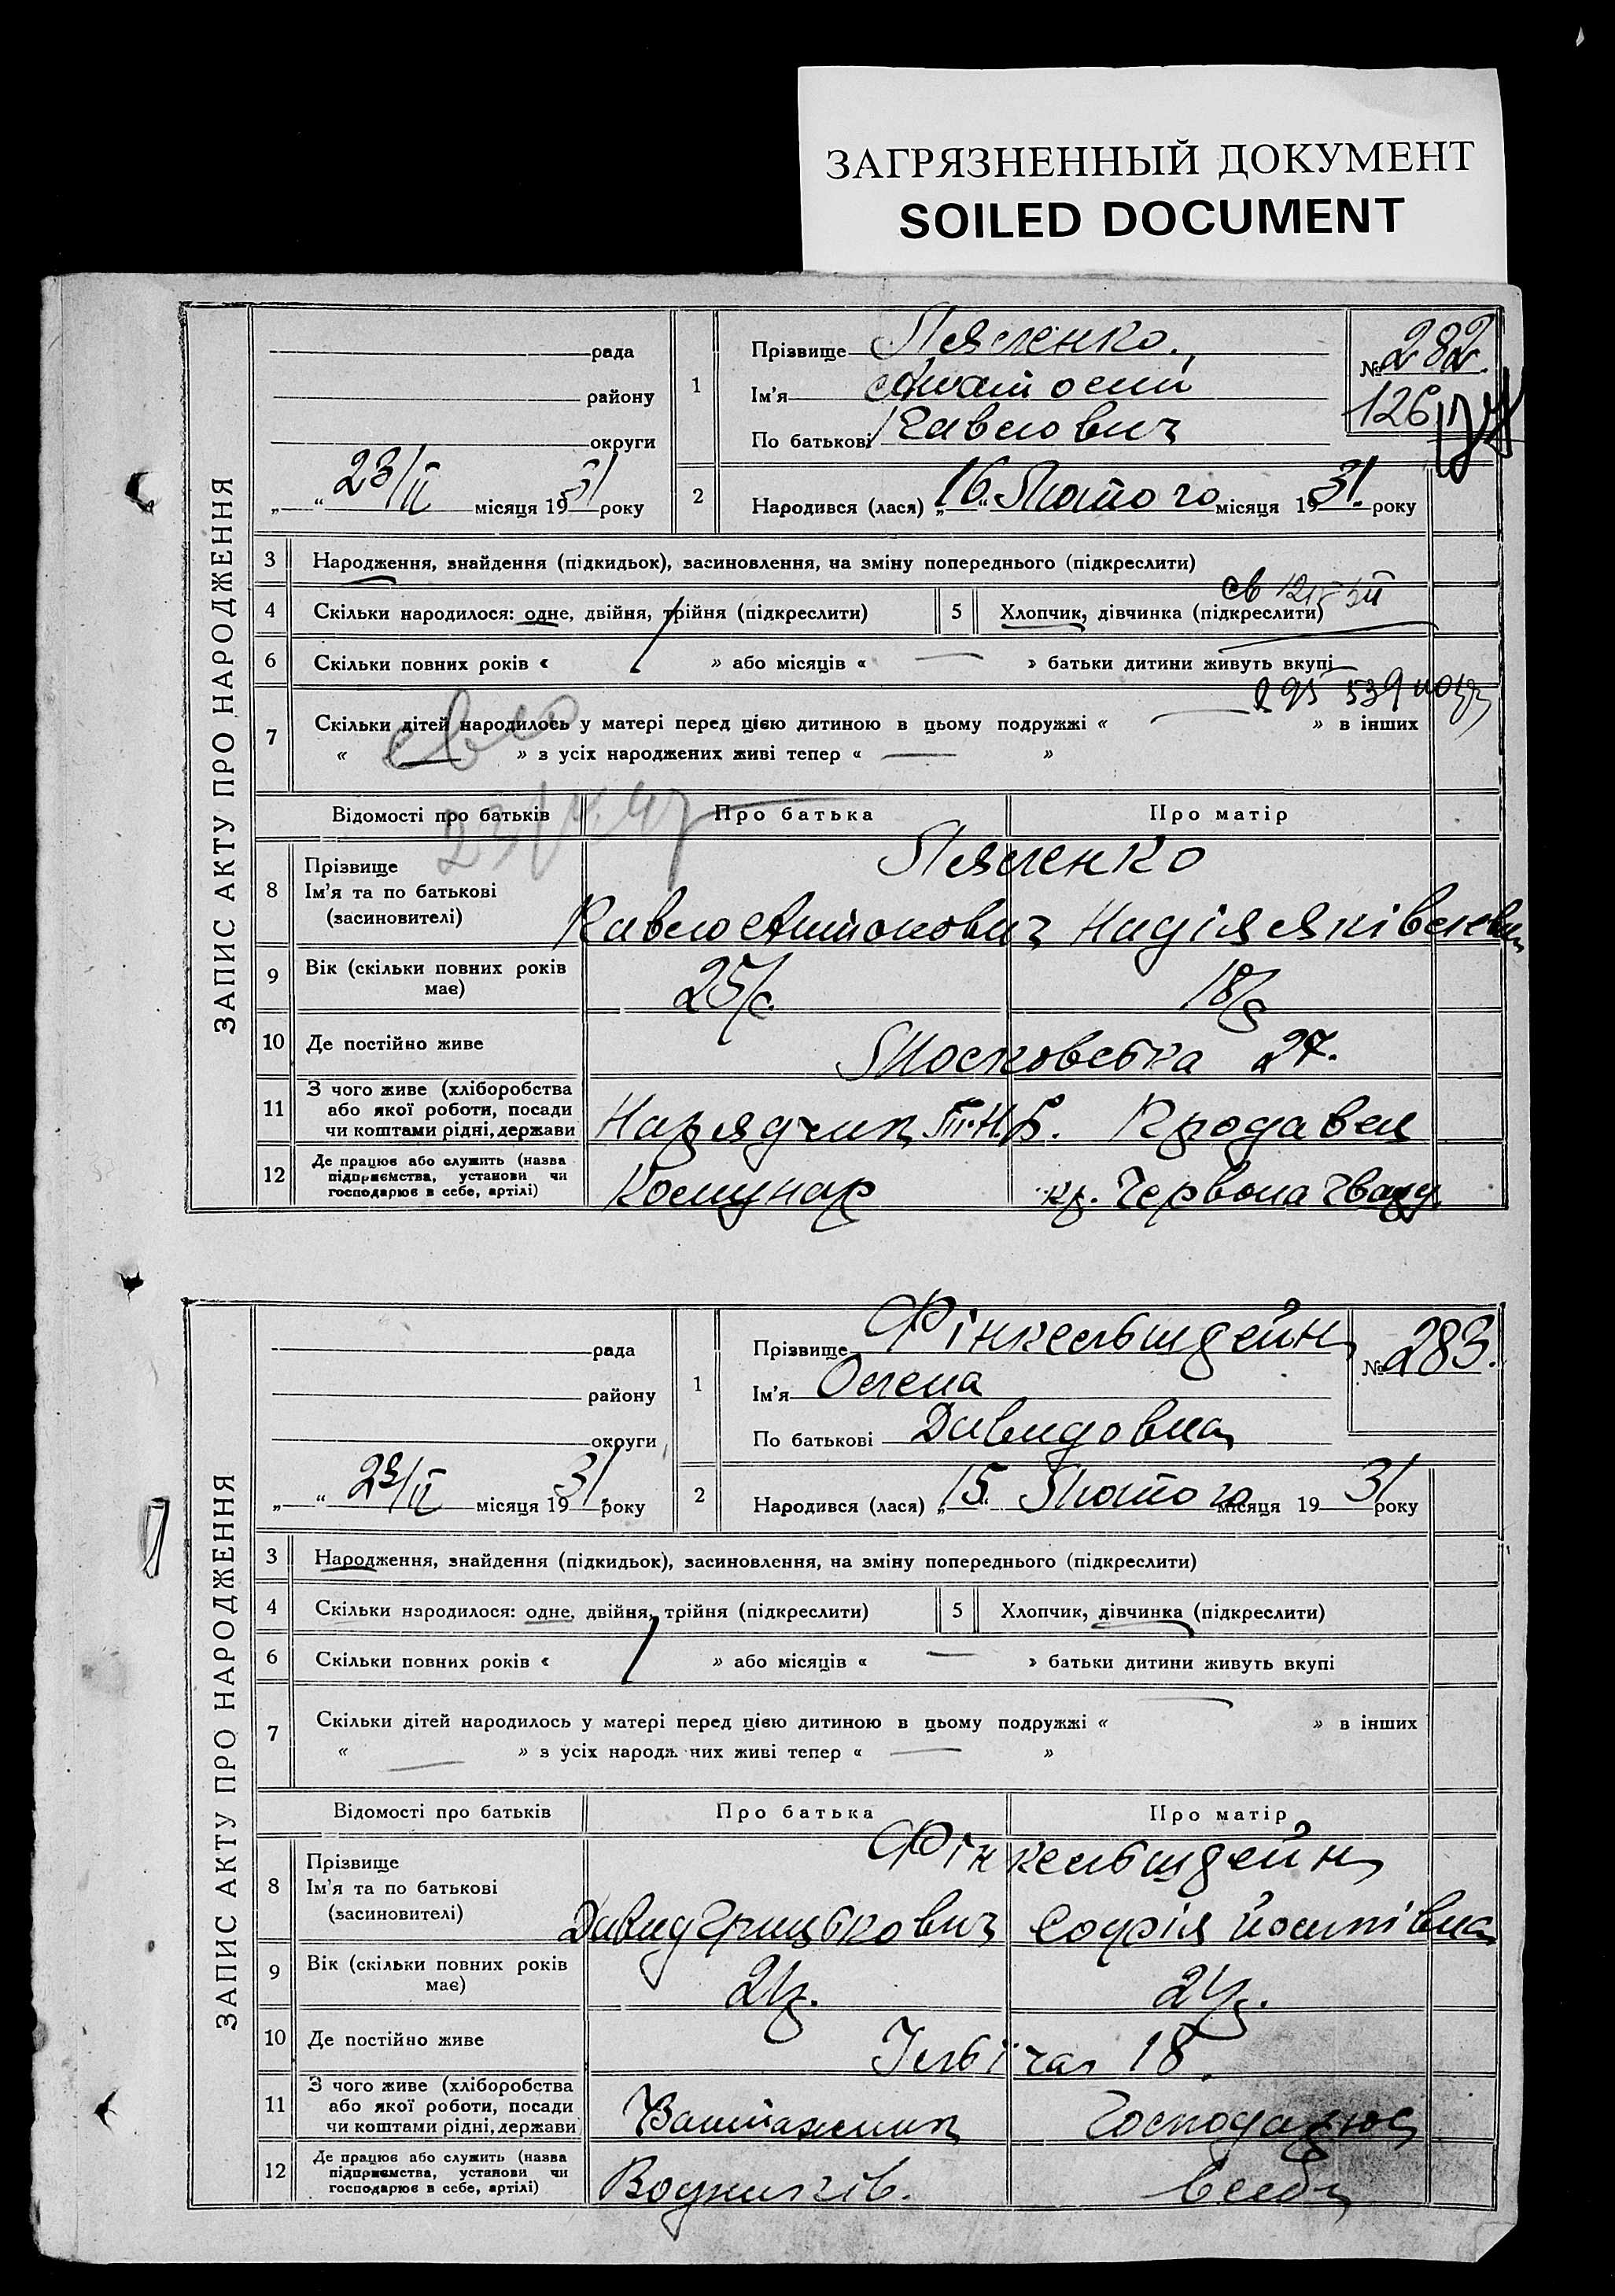 ЗАГРЯЗНЕННЫЙ ДОКУМЕНТ
SOILED DOCUMENT
ЗАПИС АКТУ ПРО НАРОДЖЕННЯ
рада
району
округи
„ “ 23/II місяця 1931 року
1
Прізвище
Ім'я Анатолій
По батькові Павлович
№ 282.
126
2
Народився (лася) „16“ Лютого місяця 1931. року
3 Народження, знайдення (підкидьок), засиновлення, на зміну попереднього (підкреслити)
4 Скільки народилося: одне, двійня, трійня (підкреслити)
5 Хлопчик, дівчинка (підкреслити)
6 Скільки повних років « 1 » або місяців « — » батьки дитини живуть вкупі
7 Скільки дітей народилось у матері перед цією дитиною в цьому подружжі « — » в інших
« — » з усіх народжених живі тепер « — »
Відомості про батьків
Про батька
Про матір
8 Прізвище
Ім'я та по батькові
(засиновителі)
Павло Антонович Надія Яківлевн
9 Вік (скільки повних років
має)
25
18
10 Де постійно живе
Московська 27.
11 З чого живе (хліборобства
або якої роботи, посади
чи коштами рідні, держави
Нарядчик Продавец
12 Де працює або служить (назва
підприємства, установи чи
господарює в себе, артілі)
Комунар
кр. Червона Гвард.
ЗАПИС АКТУ ПРО НАРОДЖЕННЯ
рада
району
округи
„ “ 23/II місяця 1931. року
1
Прізвище Фінкельштейн
Ім'я Олена
По батькові Давидовна
№ 283.
2
Народився (лася) „15.“ Лютого місяця 1931 року
3 Народження, знайдення (підкидьок), засиновлення, на зміну попереднього (підкреслити)
4 Скільки народилося: одне, двійня, трійня (підкреслити)
5 Хлопчик, дівчинка (підкреслити)
6 Скільки повних років « 1 » або місяців « — » батьки дитини живуть вкупі
7 Скільки дітей народилось у матері перед цією дитиною в цьому подружжі « — » в інших
« — » з усіх народж них живі тепер « — »
Відомості про батьків
Про батька
Про матір
8 Прізвище
Ім'я та по батькові
(засиновителі)
Фінкельштейн
Давид Грицькович Софія Йосипівна
9 Вік (скільки повних років
має)
10 Де постійно живе
Ілліча 18.
11 З чого живе (хліборобства
або якої роботи, посади
чи коштами рідні, держави
Вантажник Господарює
12 Де працює або служить (назва
підприємства, установи чи
господарює в себе, артілі)
Водників. в себе